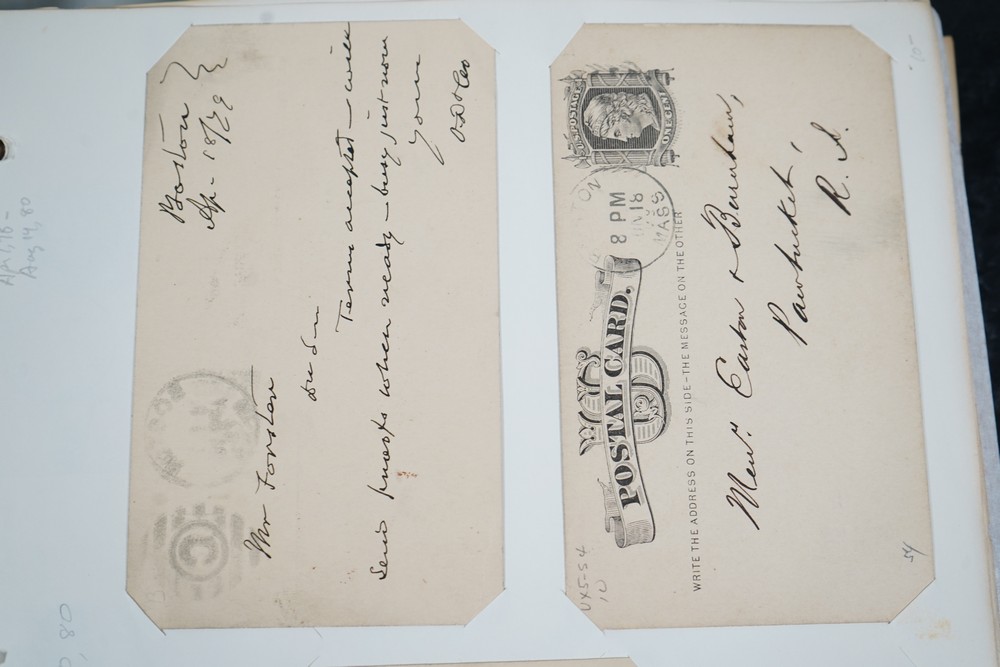 Boston
Ap - 18/79
Mr Forster
Dr Sir
Terms accepted — will
Send proofs when ready — busy just now
Yours
U.S. POSTAGE
ONE CENT
8 PM
18
MASS
US
POSTAL CARD.
WRITE THE ADDRESS ON THIS SIDE–THE MESSAGE ON THE OTHER
Mess.rs & Burnham,
Pawtucket,
R. I.
UX5-S4
10
54
C
Apr 1, 78 -
Aug 14, 80
10-
80